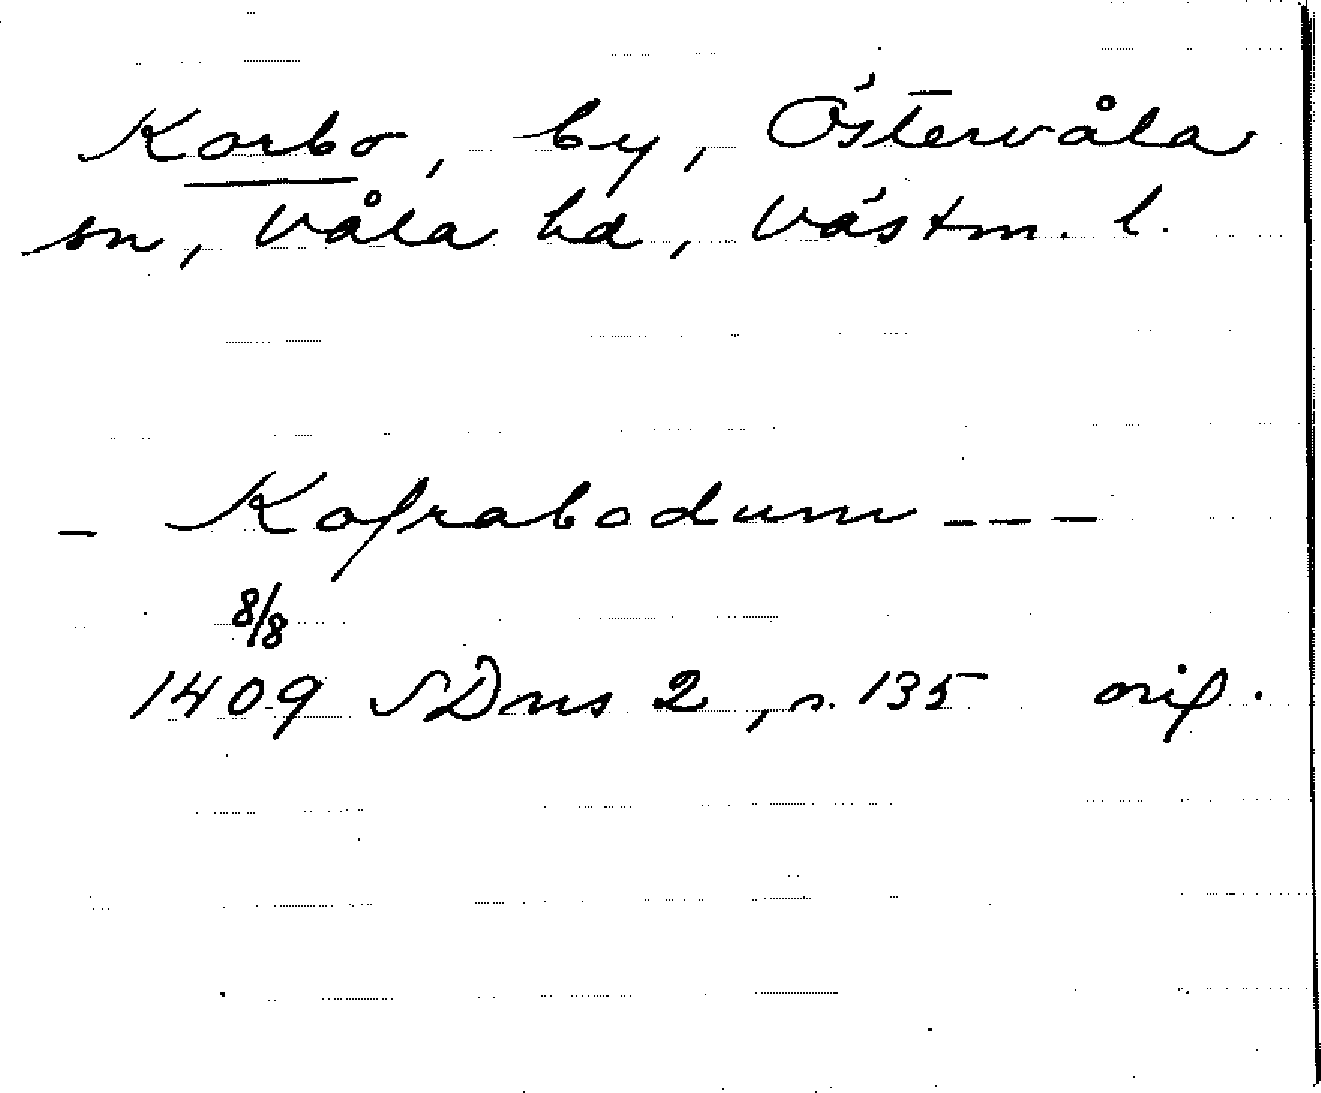 Korbo, by, Östervåla
sn, Våla hd, Västm. l.
– Kofrabodum – – –
8/8
1409 SDns 2, s. 135 orig.